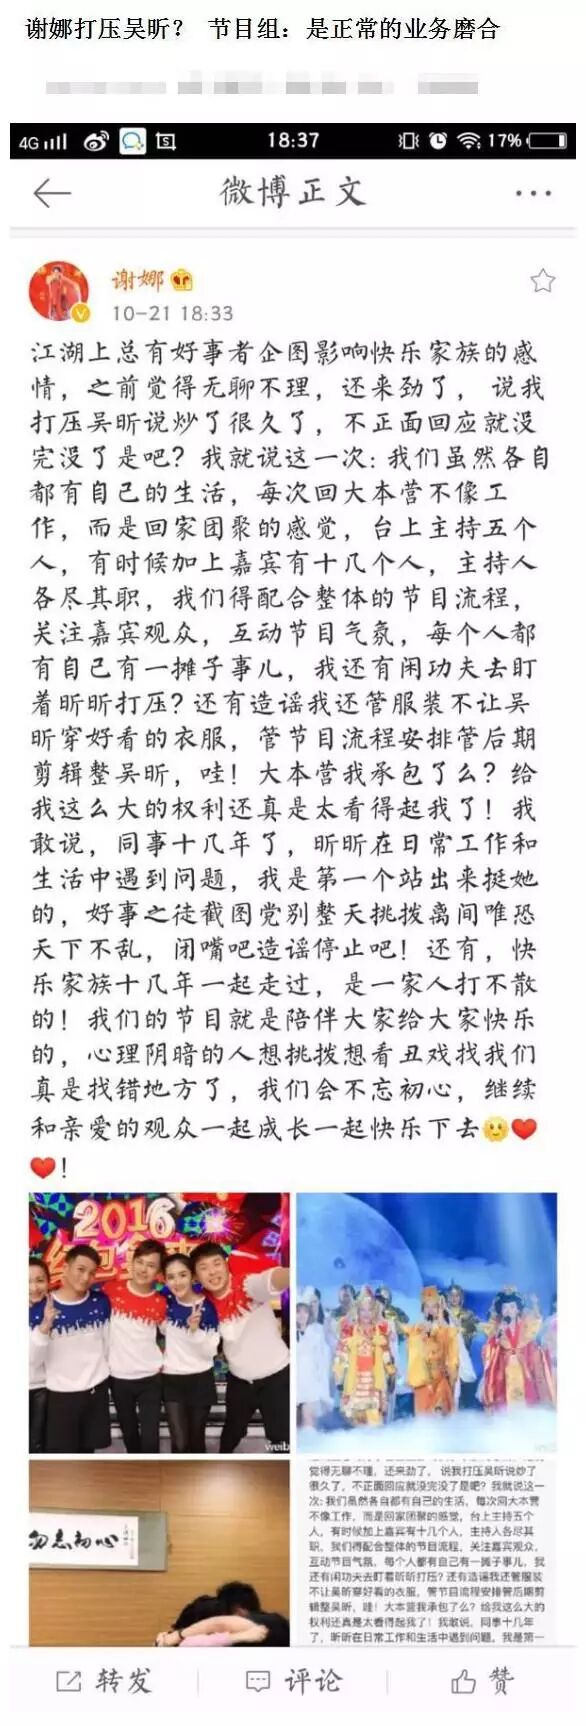 谢娜打压吴昕？ 节目组：是正常的业务磨合
4G 18:37 17%
微博正文
谢娜
10-21 18:33
江湖上总有好事者企图影响快乐家族的感
情，之前觉得无聊不理，还来劲了， 说我
打压吴昕说炒了很久了，不正面回应就没
完没了是吧？我就说这一次：我们虽然各自
都有自己的生活，每次回大本营不像工
作，而是回家团聚的感觉，台上主持五个
人，有时候加上嘉宾有十几个人，主持人
各尽其职，我们得配合整体的节目流程，
关注嘉宾观众，互动节目气氛，每个人都
有自己有一摊子事儿，我还有闲功夫去盯
着昕昕打压？还有造谣我还管服装不让吴
昕穿好看的衣服，管节目流程安排管后期
剪辑整吴昕，哇！大本营我承包了么？给
我这么大的权利还真是太看得起我了！我
敢说，同事十几年了，昕昕在日常工作和
生活中遇到问题，我是第一个站出来挺她
的，好事之徒截图党别整天挑拨离间唯恐
天下不乱，闭嘴吧造谣停止吧！还有，快
乐家族十几年一起走过，是一家人打不散
的！我们的节目就是陪伴大家给大家快乐
的，心理阴暗的人想挑拨想看丑戏找我们
真是找错地方了，我们会不忘初心，继续
和亲爱的观众一起成长一起快乐下去🌝❤️
❤️！
2016
weib
weibo
勿忘初心
觉得无聊不理，还来劲了， 说我打压吴昕说炒了
很久了，不正面回应就没完没了是吧？我就说这一
次：我们虽然各自都有自己的生活，每次回大本营
不像工作，而是回家团聚的感觉，台上主持五个
人，有时候加上嘉宾有十几个人，主持人各尽其
职，我们得配合整体的节目流程，关注嘉宾观众，
互动节目气氛，每个人都有自己有一摊子事儿，我
还有闲功夫去盯着昕昕打压？还有造谣我还管服装
不让吴昕穿好看的衣服，管节目流程安排管后期剪
辑整吴昕，哇！大本营我承包了么？给我这么大的
权利还真是太看得起我了！我敢说，同事十几年
了，昕昕在日常工作和生活中遇到问题，我是第一
转发 评论 赞